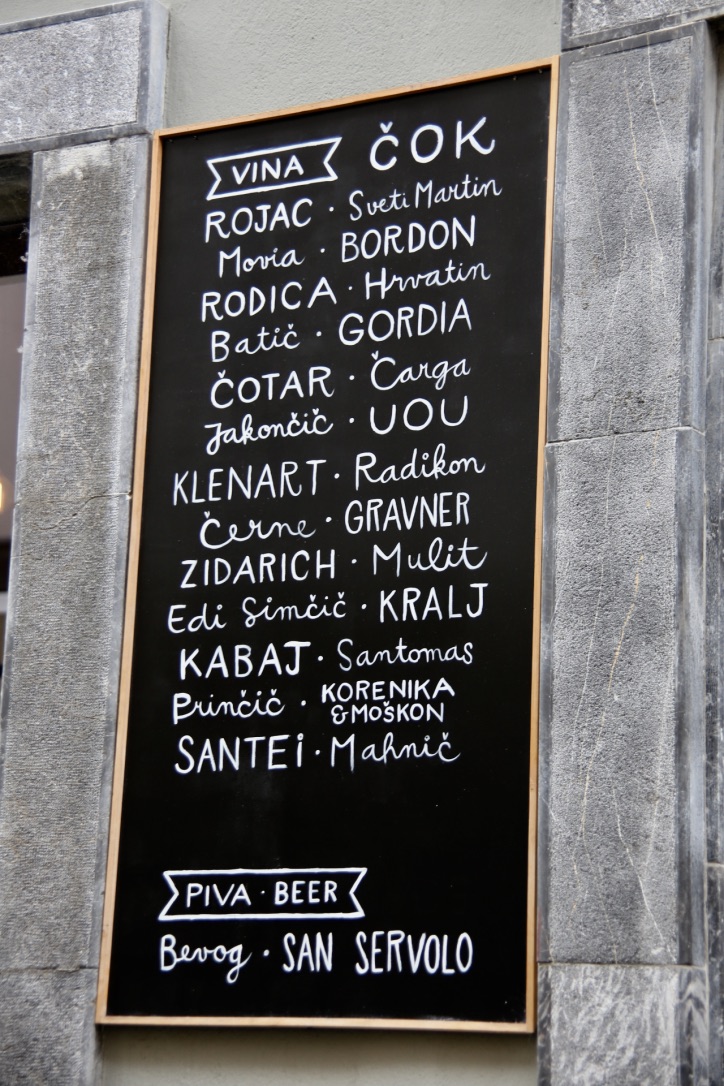 VINA ČOK
ROJAC · Sveti Martin
Movia · BORDON
RODICA · Hrvatin
Batič · GORDIA
ČOTAR · Čarga
Jakončič · UOU
KLENART · Radikon
Černe · GRAVNER
ZIDARICH · Mulit
Edi Simčič · KRALJ
KABAJ · Santomas
Prinčič · KORENIKA
&MOŠKON
SANTEI · Mahnič
PIVA · BEER
Bevog · SAN SERVOLO